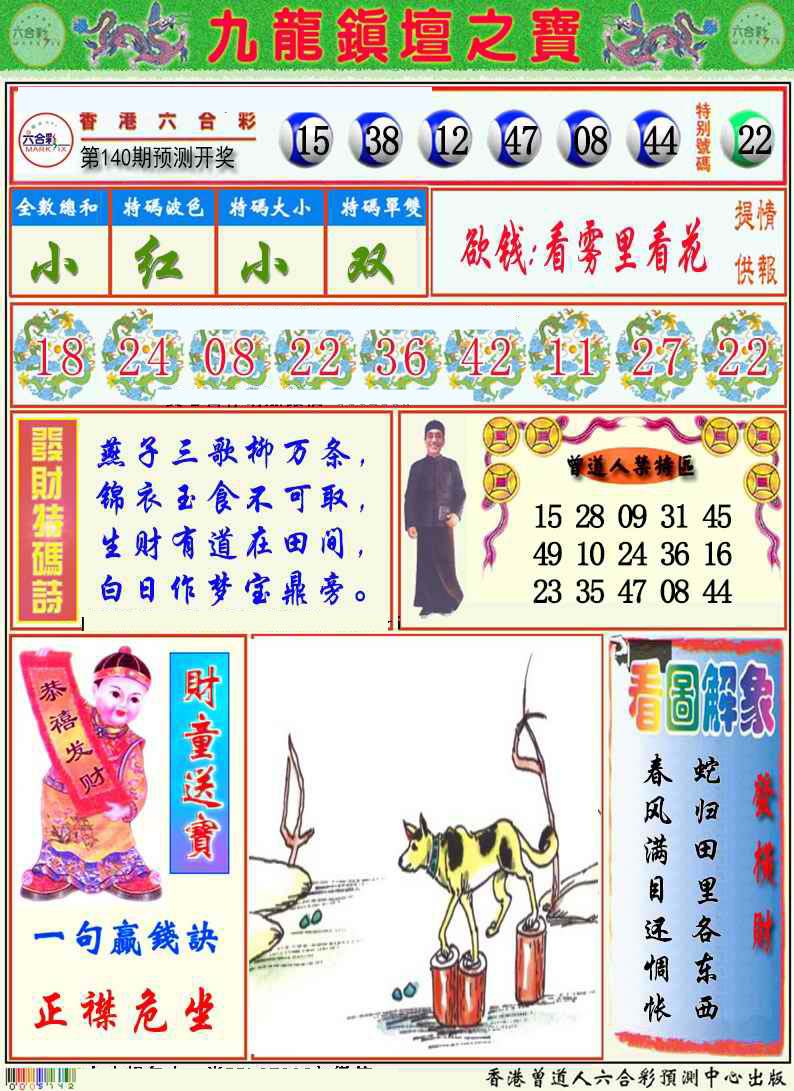 六合彩 MARK SIX
九龍鎮壇之寶
六合彩 MARK SIX
六合彩 MARK SIX
香港六合彩
第140期预测开奖
15 38 12 47 08 44
特别號碼
22
全數總和 特碼波色 特碼大小 特碼單雙
小 红 小 双
欲钱:看雾里看花
提供
情報
18 24 08 22 36 42 11 27 22
發財特碼詩
燕子三歌柳万条,
锦衣玉食不可取,
生财有道在田间,
白日作梦宝鼎旁。
曾道人禁特區
15 28 09 31 45
49 10 24 36 16
23 35 47 08 44
恭禧发财
財童送寶
一句贏錢訣
正襟危坐
看圖解象
發橫財
蛇归田里各东西
春风满目还惆怅
香港曾道人六合彩預測中心出版